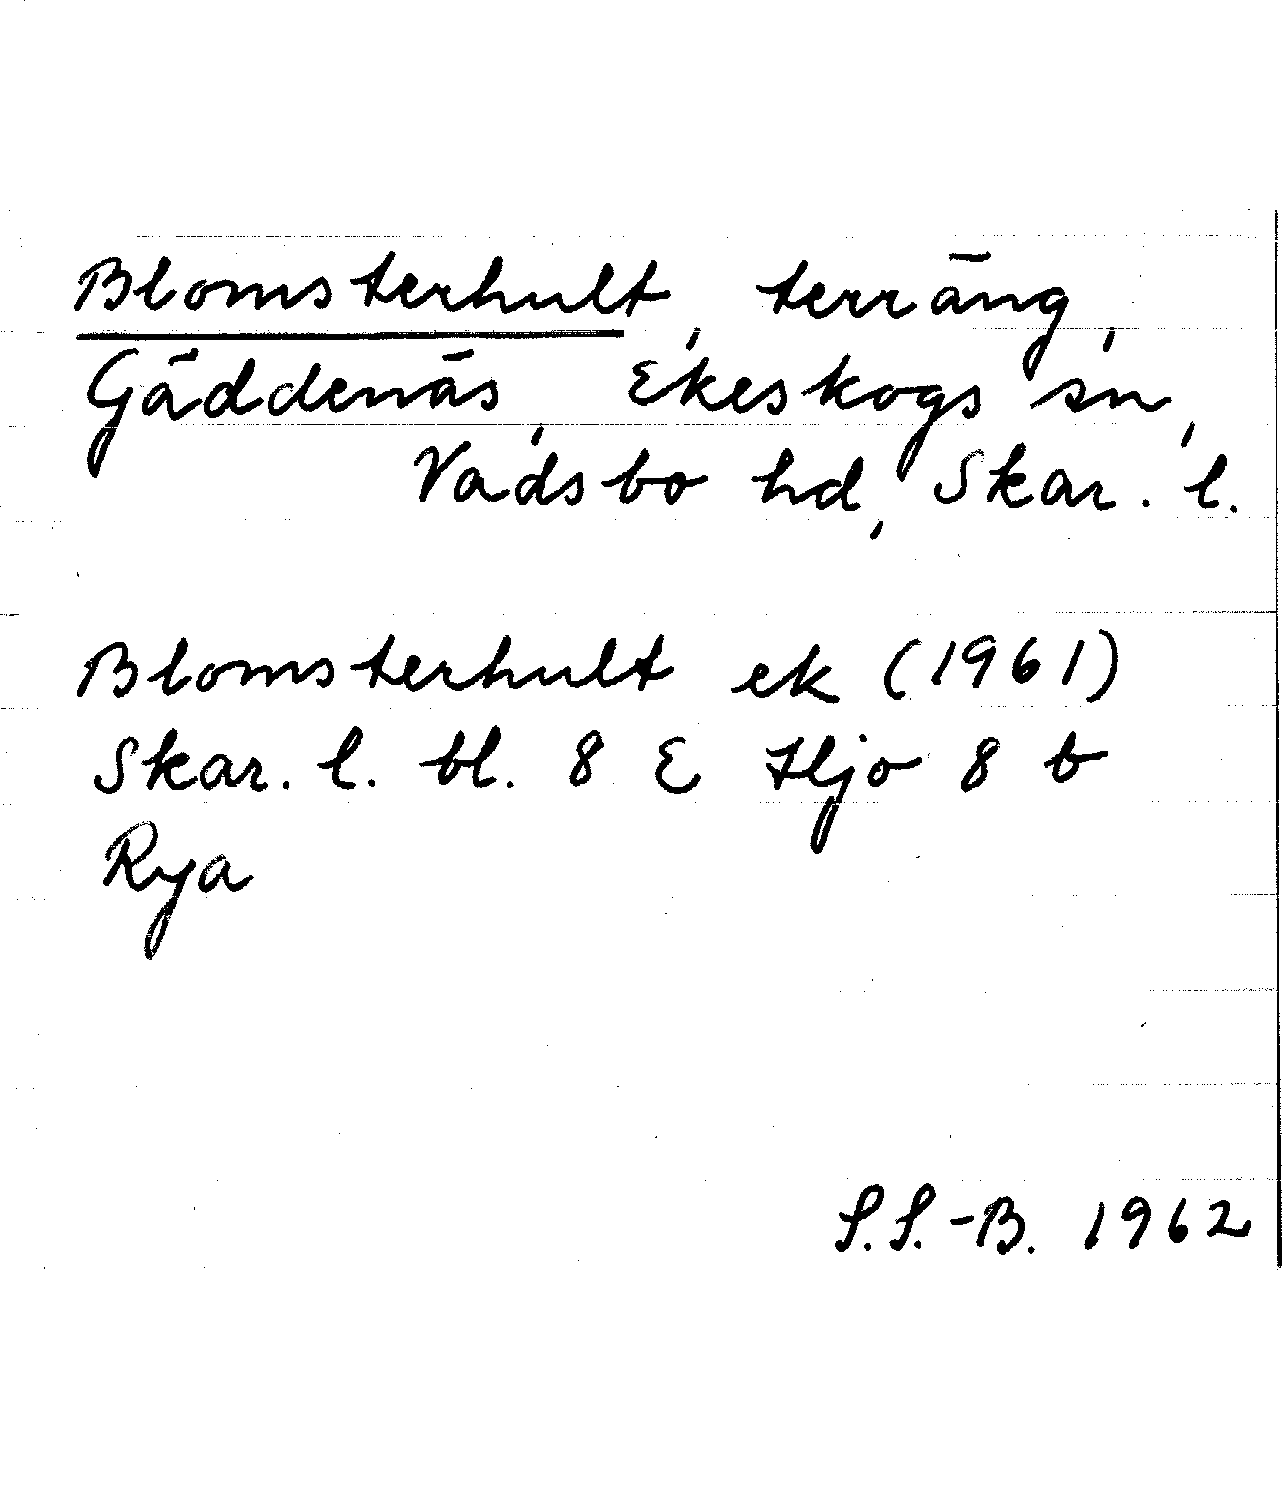 Blomsterhult, terräng,
Gäddenäs, Ekeskogs sn,
Vadsbo hd, Skar. l.
Blomsterhult ek (1961)
Skar. l. bl. 8 E Hjo 8 b
Rya
S.S.-B. 1962